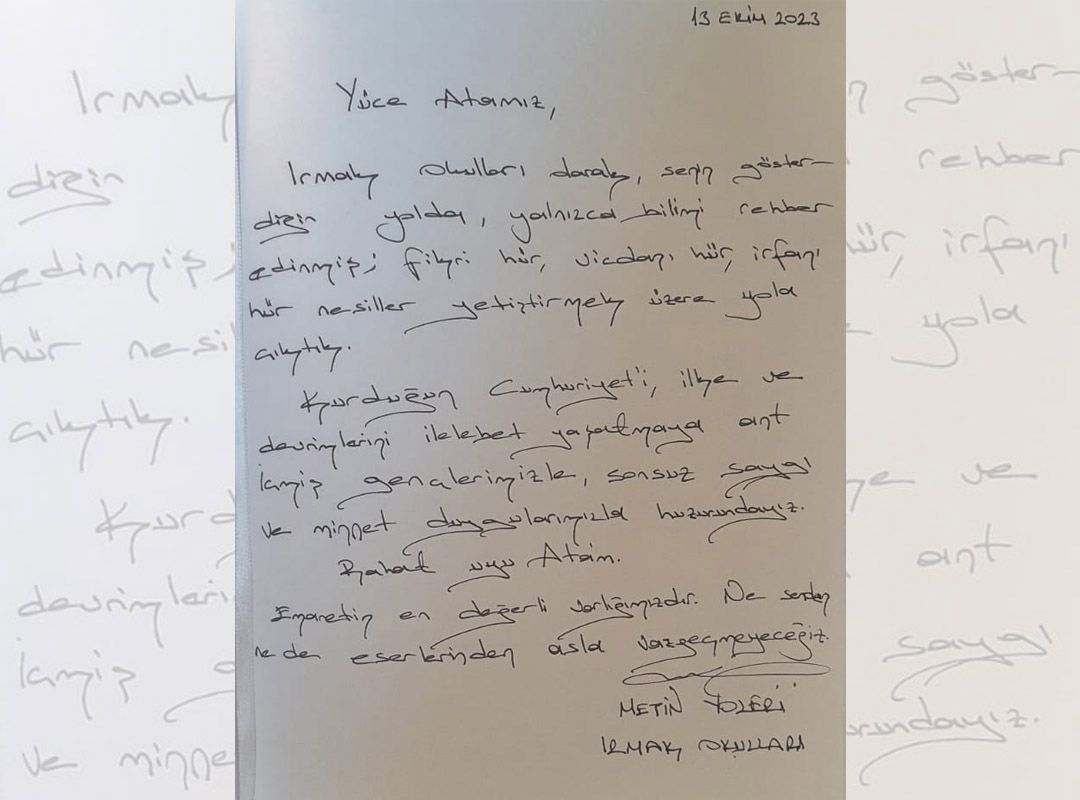 13 EKİM 2023
Yüce Atamız,
Irmak Okulları olarak, senin göster-
diğin yolda, yalnızca bilimi rehber
edinmiş; fikri hür, vicdanı hür, irfanı
hür nesiller yetiştirmek üzere yola
çıktık.
Kurduğun Cumhuriyet'i, ilke ve
devrimlerini ilelebet yaşatmaya ant
içmiş gençlerimizle, sonsuz saygı
ve minnet duygularımızla huzurundayız.
Rahat uyu Atam.
Emanetin en değerli varlığımızdır. Ne senden
ne de eserlerinden asla vazgeçmeyeceğiz.
METİN
IRMAK OKULLARI